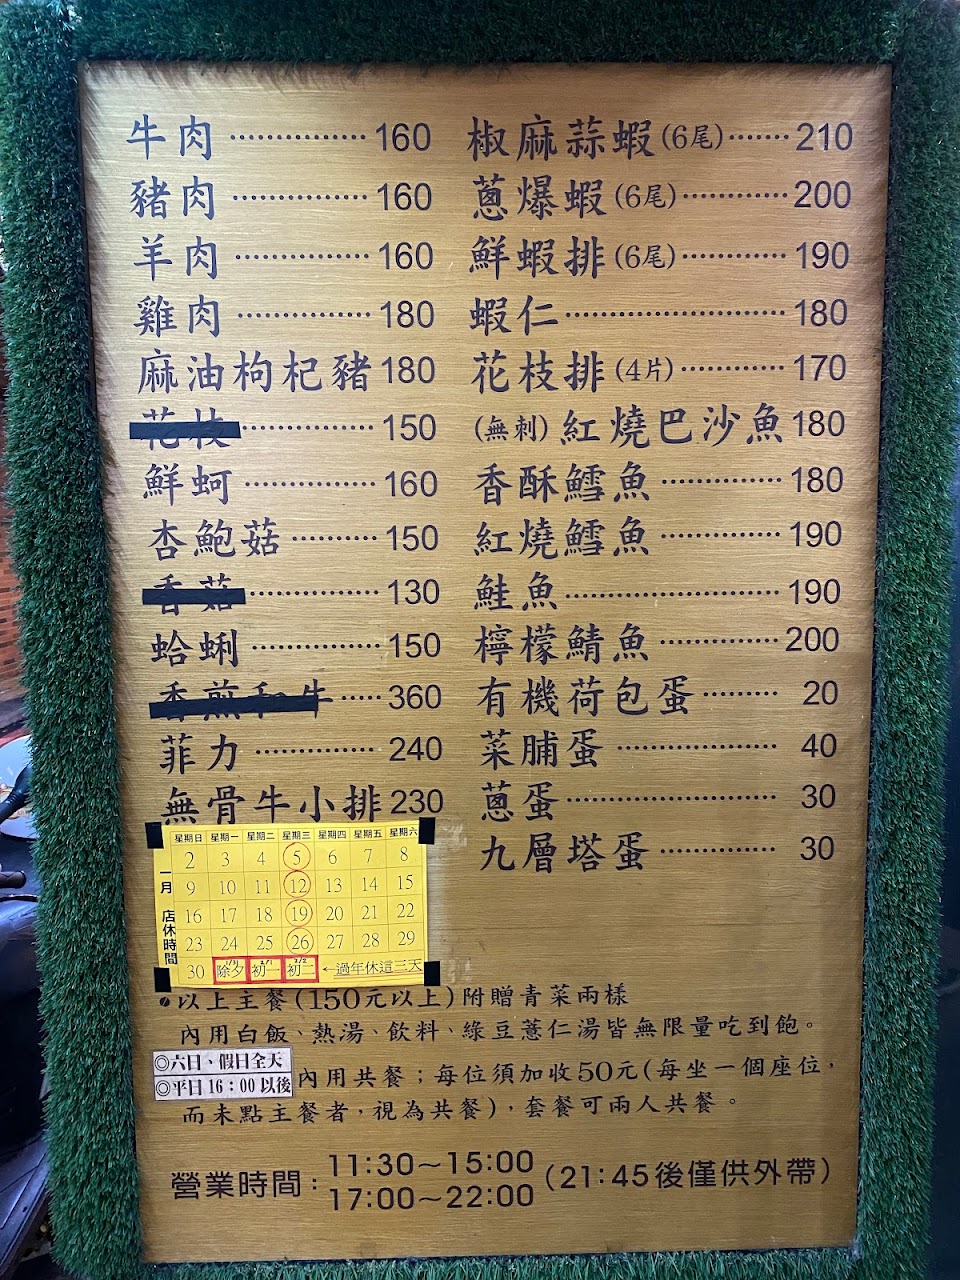 牛肉 ··············· 160
豬肉 ··············· 160
羊肉 ··············· 160
雞肉 ··············· 180
麻油枸杞豬 180
花枝 ··············· 150
鮮蚵 ··············· 160
杏鮑菇 ·········· 150
香菇 ··············· 130
蛤蜊 ··············· 150
香煎和牛 ····· 360
菲力 ············· 240
無骨牛小排 230
椒麻蒜蝦(6尾) ······· 210
蔥爆蝦(6尾) ············ 200
鮮蝦排(6尾) ············ 190
蝦仁 ························ 180
花枝排(4片) ············ 170
(無刺)紅燒巴沙魚 180
香酥鱈魚 ············· 180
紅燒鱈魚 ············· 190
鮭魚 ························ 190
檸檬鯖魚 ············· 200
有機荷包蛋 ········· 20
菜脯蛋 ·················· 40
蔥蛋 ······················· 30
九層塔蛋 ············· 30
一月 店休時間
星期日 星期一 星期二 星期三 星期四 星期五 星期六
2 3 4 5 6 7 8
9 10 11 12 13 14 15
16 17 18 19 20 21 22
23 24 25 26 27 28 29
30 1/31除夕 2/1初一 2/2初二 ←過年休這三天
以上主餐(150元以上)附贈青菜兩樣
內用白飯、熱湯、飲料、綠豆薏仁湯皆無限量吃到飽。
◎六日、假日全天
◎平日16：00以後
內用共餐；每位須加收50元(每坐一個座位，
而未點主餐者，視為共餐)，套餐可兩人共餐。
營業時間：
11:30～15:00
17:00～22:00
(21:45後僅供外帶)